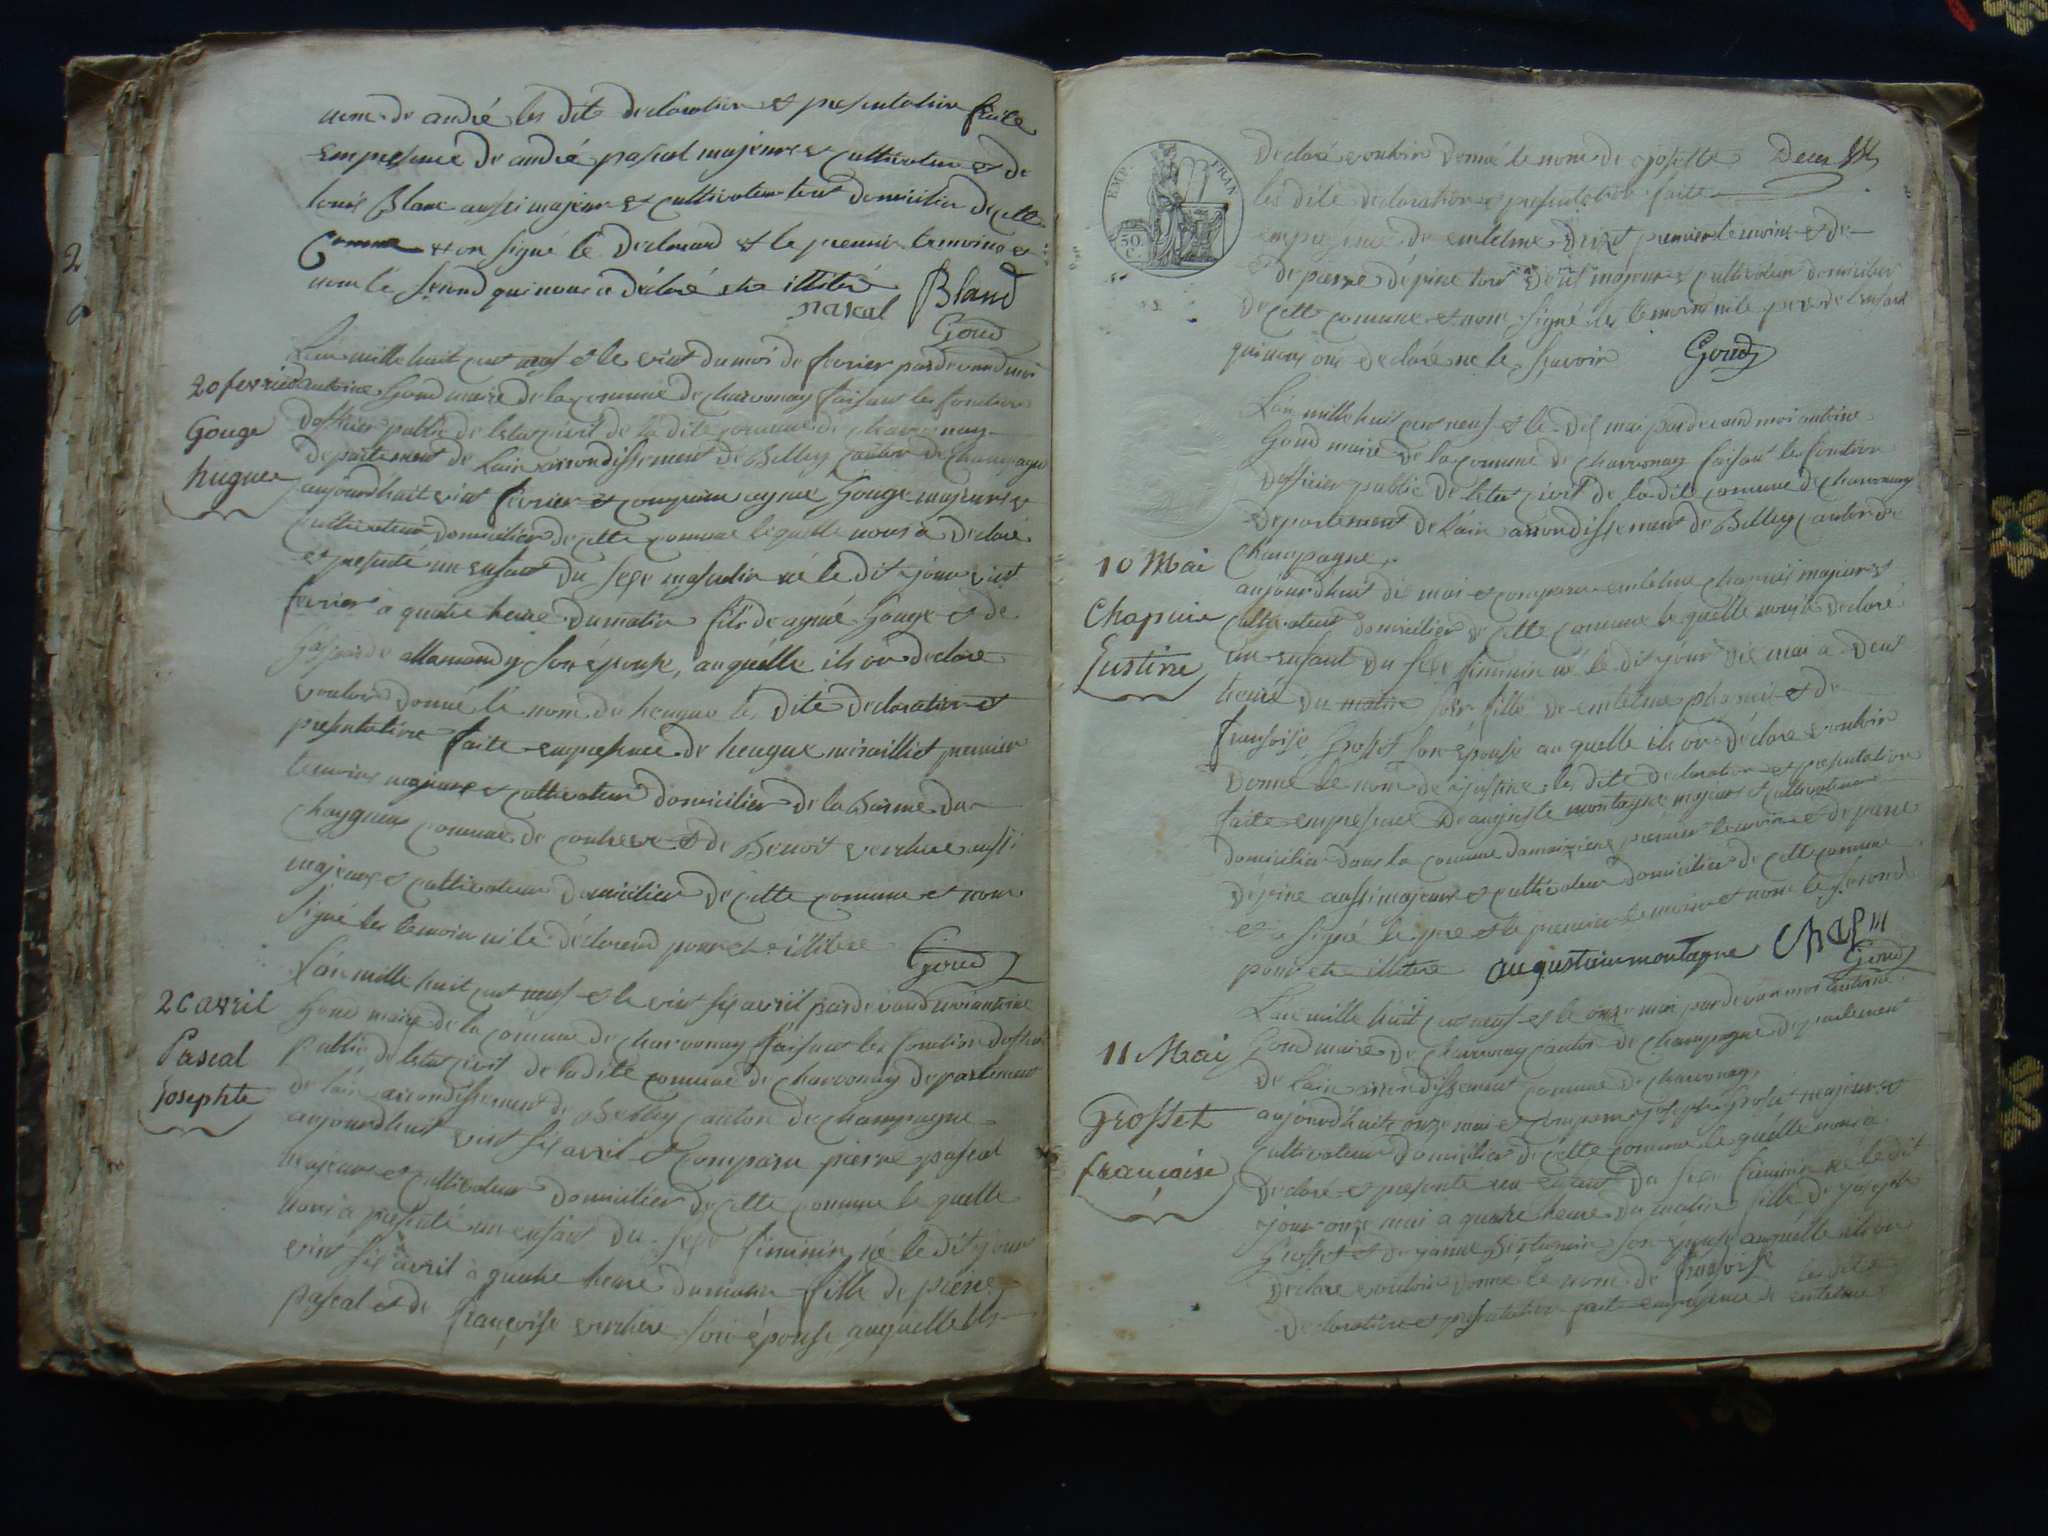 nom de andré les dite declaration et presentation faite
empresence de andré pascal majeure et cultivateur et de
louis Blanc aussi majeur et cultivateur tout domicilier de cette
Comune et on signé le declarand et le premier temoins et
nom le segond qui nous a déclaré etre illiteré
pascal Bland
Goud
L'an mille huit cent neuf et le vint du mois de fevrier pardevand moi
20 fevrier
antoine Goud maire de la comune de charvonay faisant les fonction
Gouge
hugue
dofficier public de letat civil de la dite comune de charvonay
departement de Lain arrondissement de Belley canton de Champagne
aujourdhuit vint fevrier et comparu aymé Gouge majeure et
cultivateur domicilier de cette comune lequelle nous a declaré
et presenté un enfant du sexe masculin né le dit jour vint
fevrier a quatre heure du matin fils de aymé Gouge et de
allamand son épouse, auquelle ils on declaré
vouloir donné le nom de heugue les dite declaration et
presentation faite empresence de heugue miraillet premier
temoins majeure et cultivateur domicilier de la Balme du
comune de et de Benoit verchere aussi
majeure et cultivateur domicilier de cette comune et nom
signé les temoin ni le declarand pour etre illitere
Goud
L'an mille huit cent neuf et le vint six avril pardevand moi antoine
26 avril
Pascal
Josephte
Goud maire de la comune de charvonay faisant les fonction dofficier
public de letat civil de la dite comune de charvonay departement
de lain arrondissement de Belley canton de Champagne
aujourdhuit vint six avril et comparu pierre pascal
majeure et cultivateur domicilier de cette comune le quelle
nous a presenté un enfant du sexe feminin né le dit jour
vint six avril a quatre heure du matin fille de pierre
pascal et de françoise verchere son épouse auquelle ils
EMP. FRAN.
50 C.
declaré vouloir donné le nom de josepte Deux
les dite declaration et presentation faite
empresence de entelme premier temoins et de
et de pierre dépine tous deux majeure et cultivateur domicilier
de cette comune et nom signé les temoins ni le pere de lenfant
qui nous ons declaré ne le savoir Goud
L'an mille huit cent neuf et le dix mai pardevand moi antoine
Goud maire de la comune de charvonay faisant les fonction
dofficier public de letat civil de la dite comune de charvonay
departement de Lain arrondissement de Belley canton de
Champagne,
10 Mai
Chapuis
Justine
aujourdhuit dix mai et comparu entelme Chapuis majeure et
cultivateur domicilier de cette comune le quelle nous a declaré
un enfant du sexe feminin né le dit jour dix mai a deux
heure du matin fille de entelme chapuis et de
françoise Grosset son épouse auquelle ils on déclaré vouloir
donné le nom de justine les dite declaration et presentation
faite empresence de auguste montagne majeure et cultivateur
domicilier dans la comune premier temoin et de pierre
dépine aussi majeure et cultivateur domicilier de cette comune
et signé le pere et le premier temoin et nom le segond
pour etre illitere augustin montagne Chapui
Goud
L'an mille huit cent neuf et le onze mai pardevan moi antoine
11 Mai
Grosset
françoise
Goud maire de charvonay canton de champagne departement
de Lain arrondissement comune de charvonay,
aujourdhuit onze mai et comparu joseph Grosset majeure et
cultivateur domicilier de cette comune le quelle nous a
declaré et presenté un enfant du sexe feminin né le dit
jour onze mai a quatre heure du matin fille de joseph
Grosset et de janne son épouse auquelle ils on
declaré vouloir donné le nom de françoise les dite
declaration et presentation faite empresence de entelme